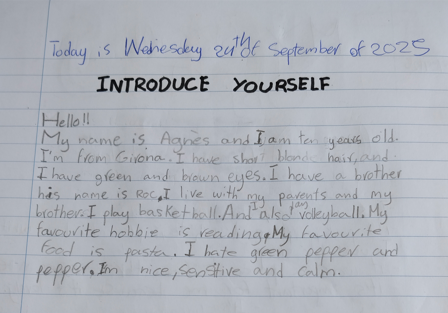 Today is Wednesday 24th of September of 2025
INTRODUCE YOURSELF
Hello!!
My name is Agnès and I am ten years old.
I'm from Girona. I have short blond hair, and
I have green and brown eyes. I have a brother
his name is Roc, I live with my parents and my
brother. I play basketball. And also volleyball. My
favourite hobbie is reading, My favourite
food is pasta. I hate green pepper and
pepper. Im nice, sensitive and calm.